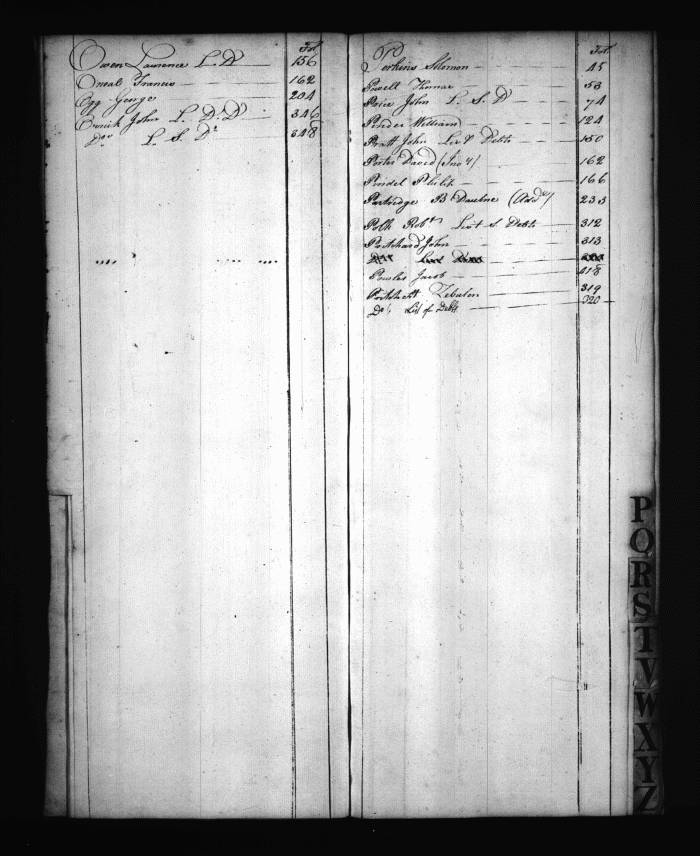 Fol
Owen Lawrence L. D 156
Oneal Francis 162
Ogg George 204
Orrick John L. D. D 346
Do L. S. D 348
P
Fol
Perkins Solomon 45
Powell Thomas 53
Price John L. S. D 74
Ponder William 124
Pratt John List Debts 150
Porter David (Ino 4) 162
Pindel Philip 166
Partridge B Daubne (Add) 233
Polk Robt List S. Debts 312
Pritchard John 313
Powles Jacob 418
Pritchett Zebulon 319
Do. List of Debts 320
P
Q
R
S
T
V
W
X
Y
Z